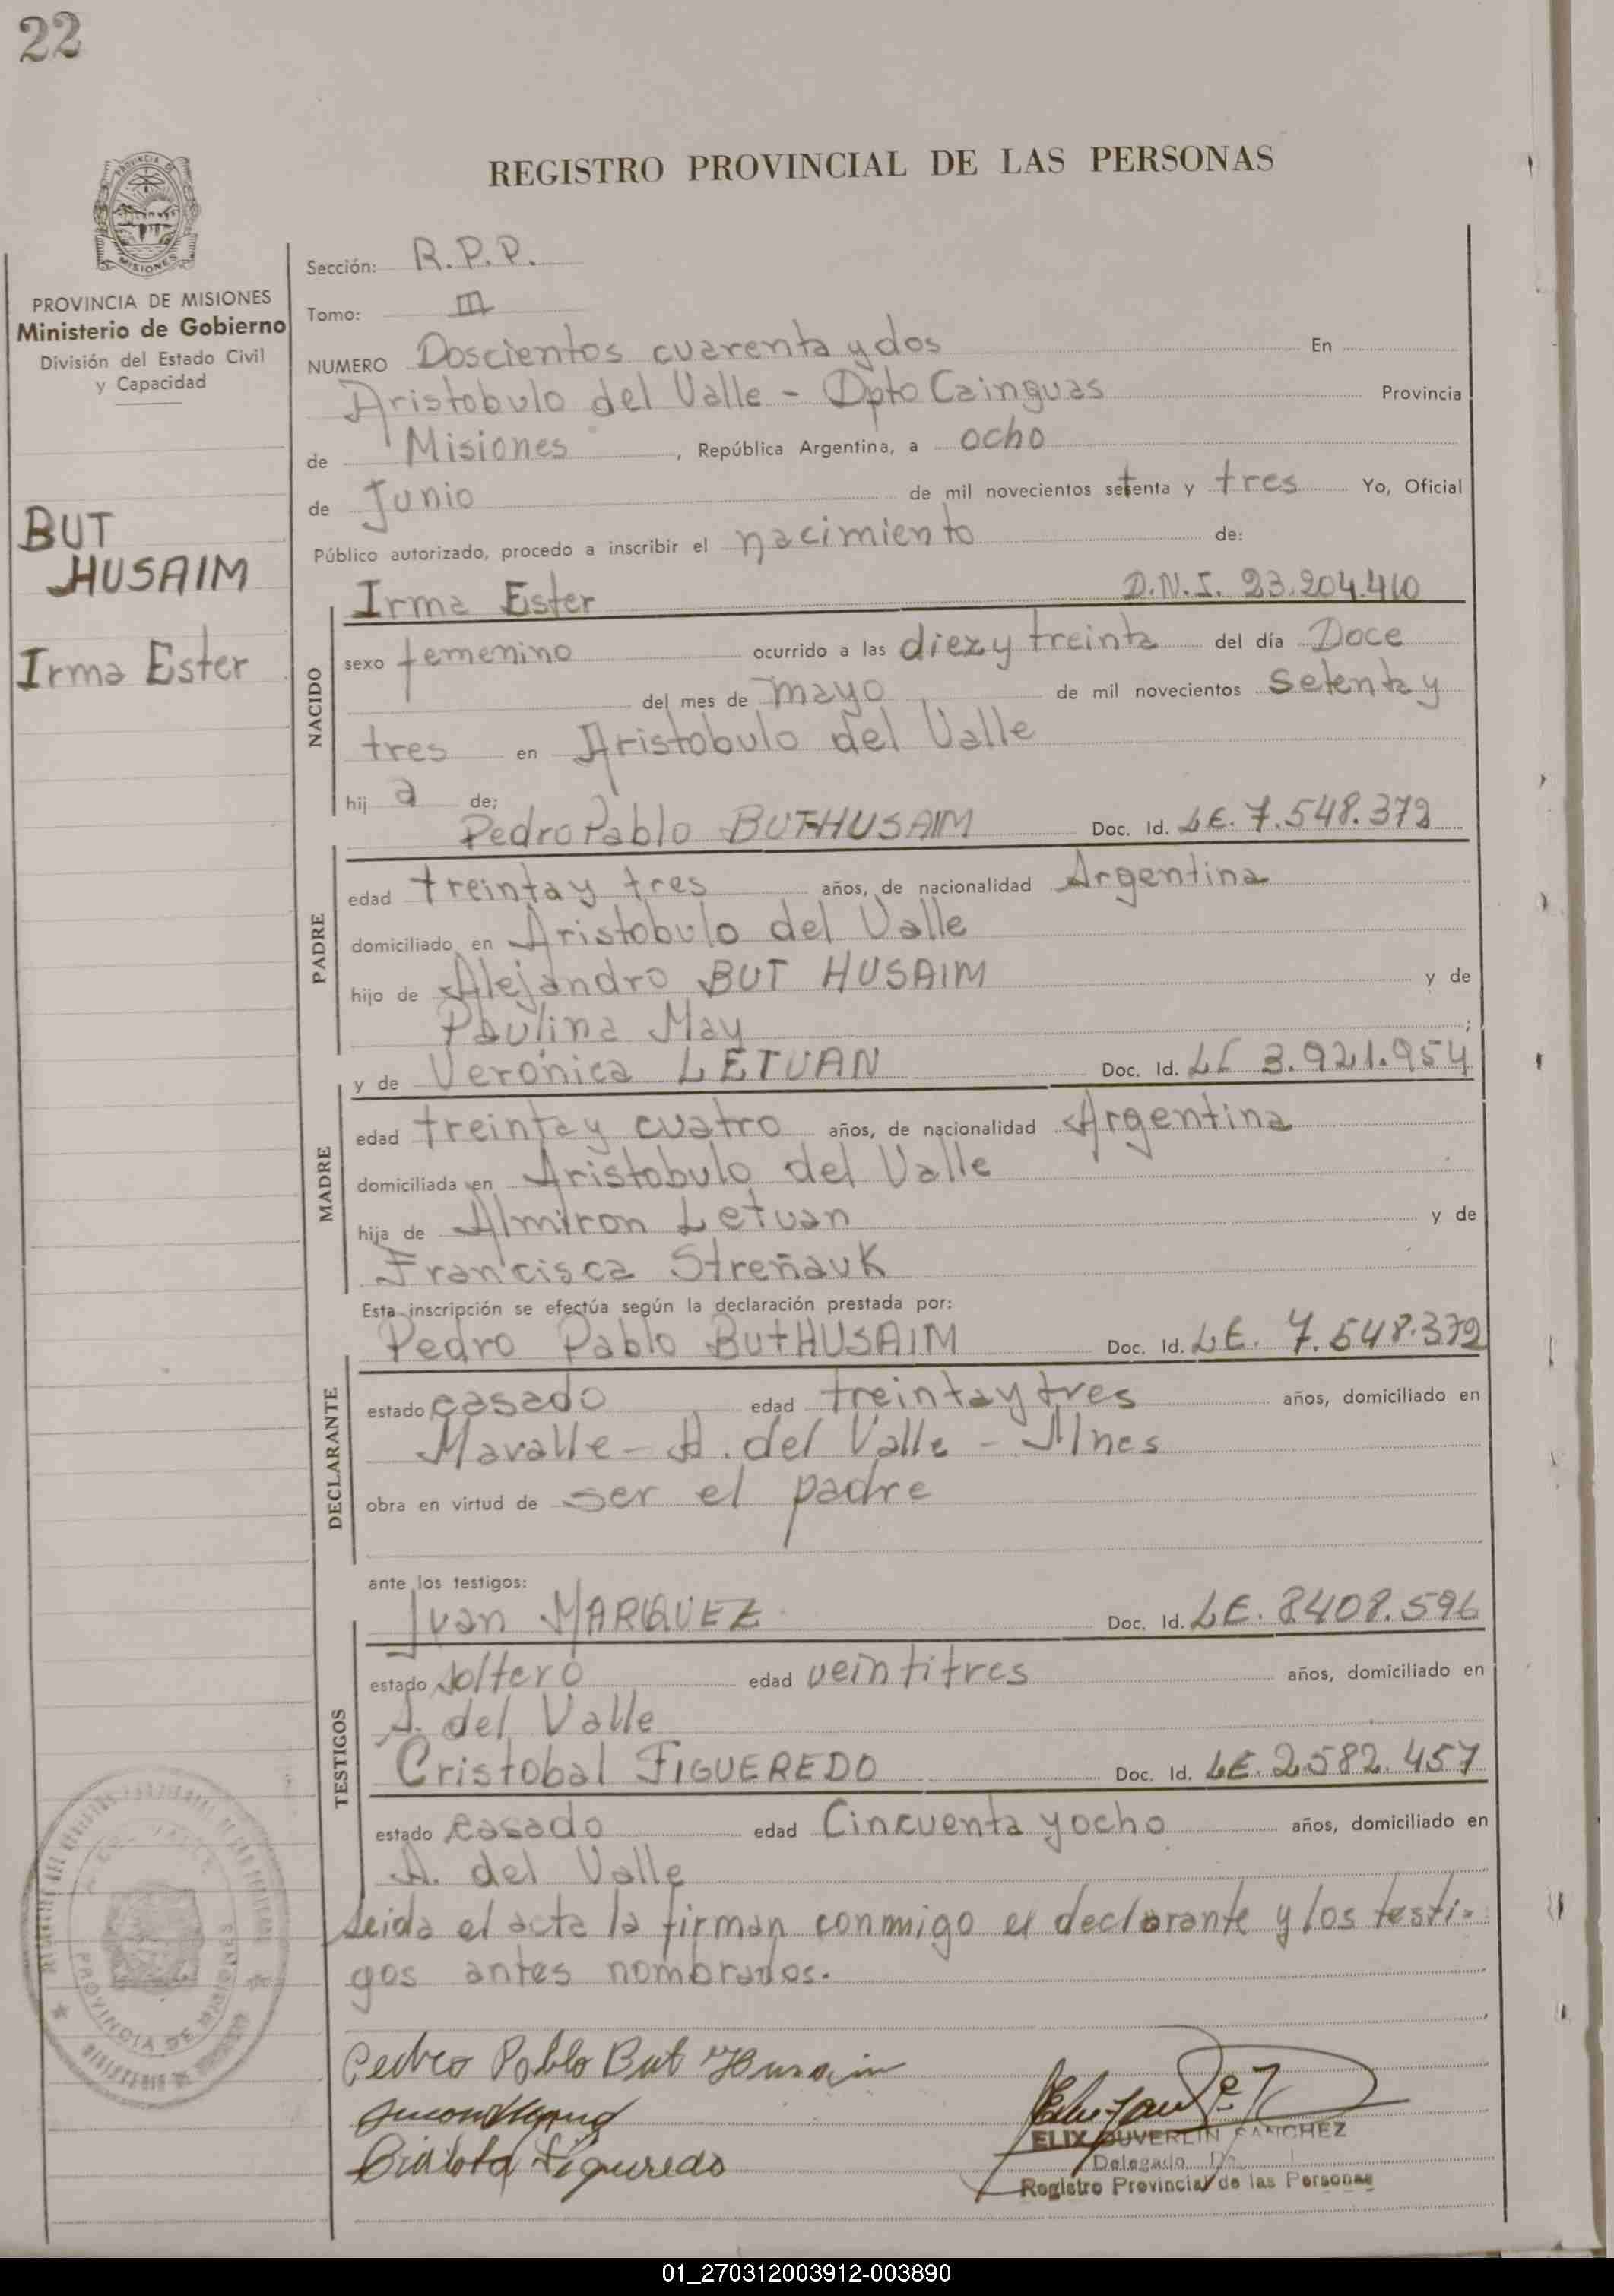 22
REGISTRO PROVINCIAL DE LAS PERSONAS
MISIONES
PROVINCIA DE MISIONES
Ministerio de Gobierno
División del Estado Civil
y Capacidad
BUT
HUSAIM
Irma Ester
Sección: R.P.P.
Tomo: III
NUMERO Doscientos cuarenta y dos En
Aristobulo del Valle - Dpto Cainguas Provincia
de Misiones, República Argentina, a ocho
de Junio de mil novecientos setenta y tres Yo, Oficial
Público autorizado, procedo a inscribir el nacimiento de:
Irma Ester D.N.I. 23.204.410
NACIDO
sexo femenino ocurrido a las diez y treinta del día Doce
del mes de mayo de mil novecientos setenta y
tres en Aristobulo del Valle
hij a de;
Pedro Pablo BUT HUSAIM Doc. Id. LE. 7.548.372
PADRE
edad treinta y tres años, de nacionalidad Argentina
domiciliado en Aristobulo del Valle
hijo de Alejandro BUT HUSAIM y de
Paulina May ;
y de Verónica LETUAN Doc. Id. LC 3.921.954
MADRE
edad treinta y cuatro años, de nacionalidad Argentina
domiciliada en Aristobulo del Valle
hija de Almiron Letuan y de
Francisca Streñauk
Esta inscripción se efectúa según la declaración prestada por:
Pedro Pablo But HUSAIM Doc. Id. LE. 7.548.372
DECLARANTE
estado casado edad treinta y tres años, domiciliado en
Mavalle - A. del Valle - Mnes
obra en virtud de ser el padre
ante los testigos:
Juan MARQUEZ Doc. Id. LE. 8408.596
TESTIGOS
estado soltero edad veintitres años, domiciliado en
A. del Valle
Cristobal FIGUEREDO Doc. Id. LE. 2.582.457
estado casado edad Cincuenta y ocho años, domiciliado en
A. del Valle
Leida el acta la firman conmigo el declarante y los testi-
gos antes nombrados.
PROVINCIA DE MISIONES
Pedro Pablo But Husain
Figueredo
ELIX DUVERLIN SANCHEZ
Delegado
Registro Provincial de las Personas
01_270312003912-003890